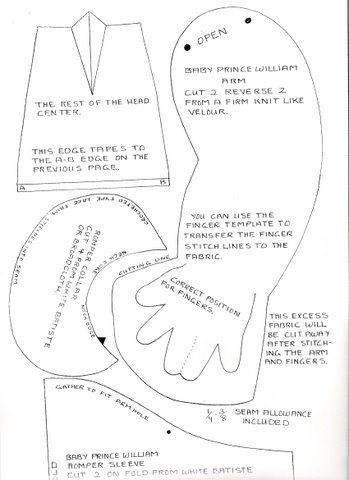 OPEN
BABY PRINCE WILLIAM
ARM
CUT 2 REVERSE 2
FROM A FIRM KNIT LIKE
VELOUR.
THE REST OF THE HEAD
CENTER.
THIS EDGE TAPES TO
THE A-B EDGE ON THE
PREVIOUS PAGE.
A B
YOU CAN USE THE
FINGER TEMPLATE TO
TRANSFER THE FINGER
STITCH LINES TO THE
FABRIC.
ROMPER COLLAR
CUT 4 FROM WHITE BATISTE
OR BROADCLOTH
NECK EDGE
NECK EDGE
CUTTING LINE
CORRECT POSITION
FOR FINGERS.
THIS EXCESS
FABRIC WILL
BE CUT AWAY
AFTER STITCH-
ING THE ARM
AND FINGERS.
GATHER TO FIT ARMHOLE
1/4 3/8 SEAM ALLOWANCE
INCLUDED
BABY PRINCE WILLIAM
ROMPER SLEEVE
CUT 2 ON FOLD FROM WHITE BATISTE